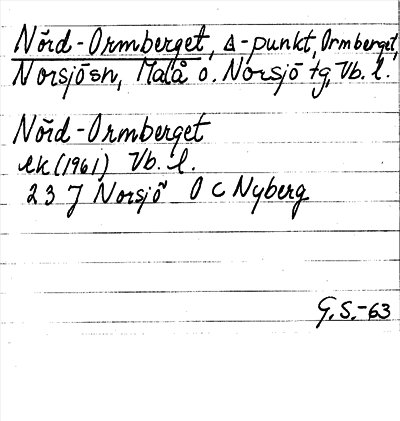 Nörd-Ormberget, Δ-punkt, Ormberget,
Norsjösn, Malå o. Norsjö tg, Vb. l.
Nörd-Ormberget
ek (1961) Vb. l.
23 J Norsjö O C Nyberg
G. S. -63